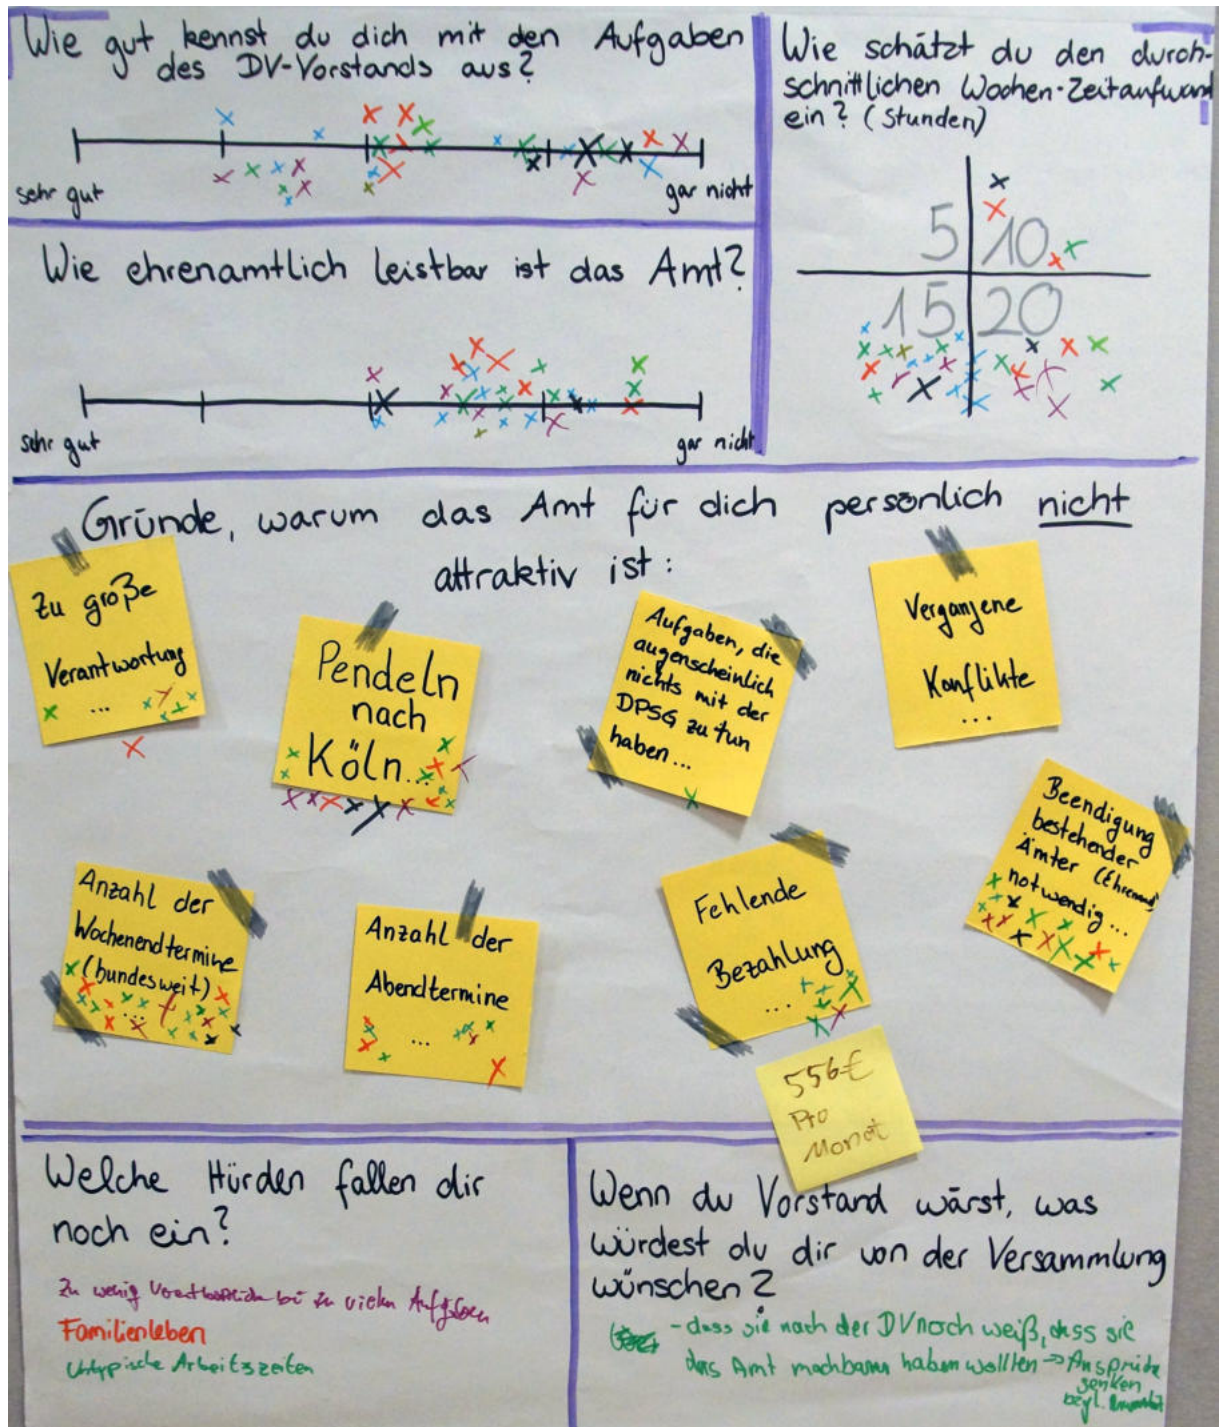 Wie gut kennst du dich mit den Aufgaben
des DV-Vorstands aus?
sehr gut
gar nicht
Wie ehrenamtlich leistbar ist das Amt?
sehr gut
gar nicht
Wie schätzt du den durch-
schnittlichen Wochen-Zeitaufwand
ein? (Stunden)
5 10
15 20
Gründe, warum das Amt für dich persönlich nicht
attraktiv ist:
Zu große
Verantwortung
...
Pendeln
nach
Köln...
Aufgaben, die
augenscheinlich
nichts mit der
DPSG zu tun
haben...
Vergangene
Konflikte
...
Anzahl der
Wochenendtermine
(bundesweit)
...
Anzahl der
Abendtermine
...
Fehlende
Bezahlung
...
556€
Pro
Monat
Beendigung
bestehender
Ämter (Ehrenamt)
notwendig...
Welche Hürden fallen dir
noch ein?
Zu wenig bei zu vielen Aufgaben
Familienleben
Untypische Arbeitszeiten
Wenn du Vorstand wärst, was
würdest du dir von der Versammlung
wünschen?
- dass sie nach der DV noch weiß, dass sie
das Amt machbarer haben wollten → Ansprüche
senken
bzgl.